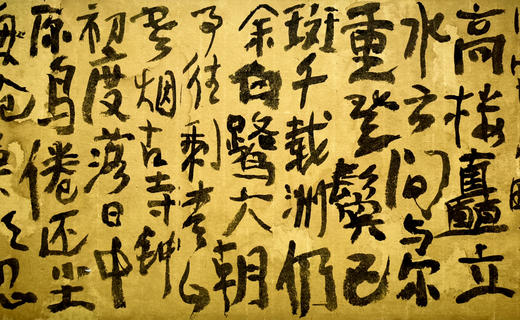 高楼矗立
水云间与尔
重登鬓已
斑千载洲仍
余白鹭六朝
事往剩青山
烟古寺钟
初度落日中
原鸟倦还坐